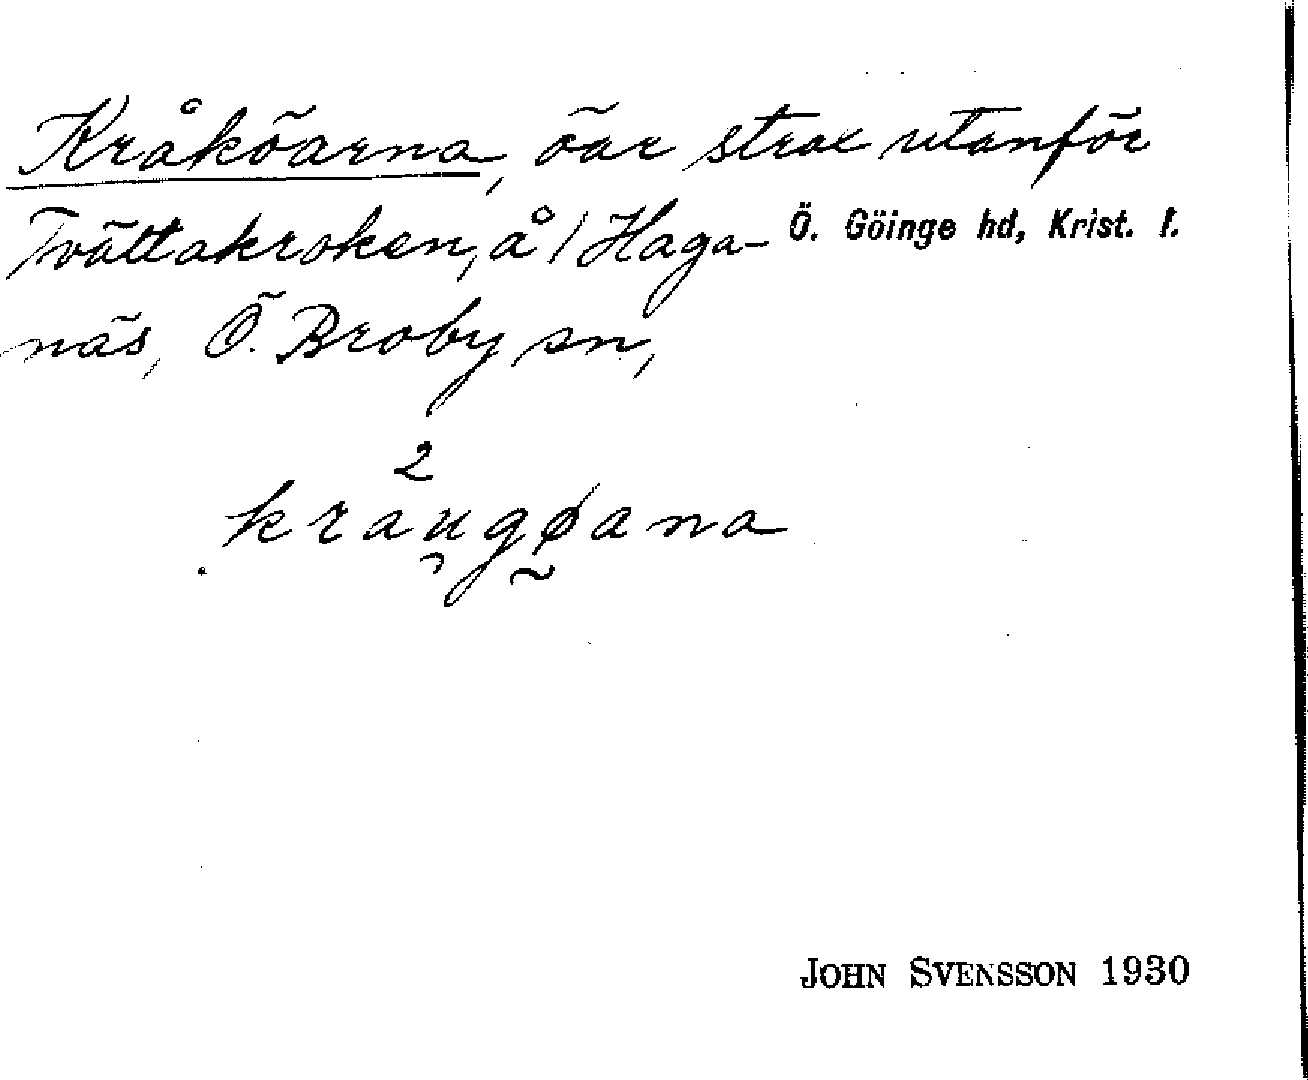 Kråköarna, öar strax utanför
Tvättakroken, å 1 Haga-
Ö. Göinge hd, Krist. l.
näs, Ö. Broby sn,
2
kraugøana
JOHN SVENSSON 1930